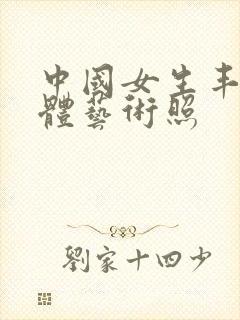 中國女生丰
體藝術照
劉家十四少